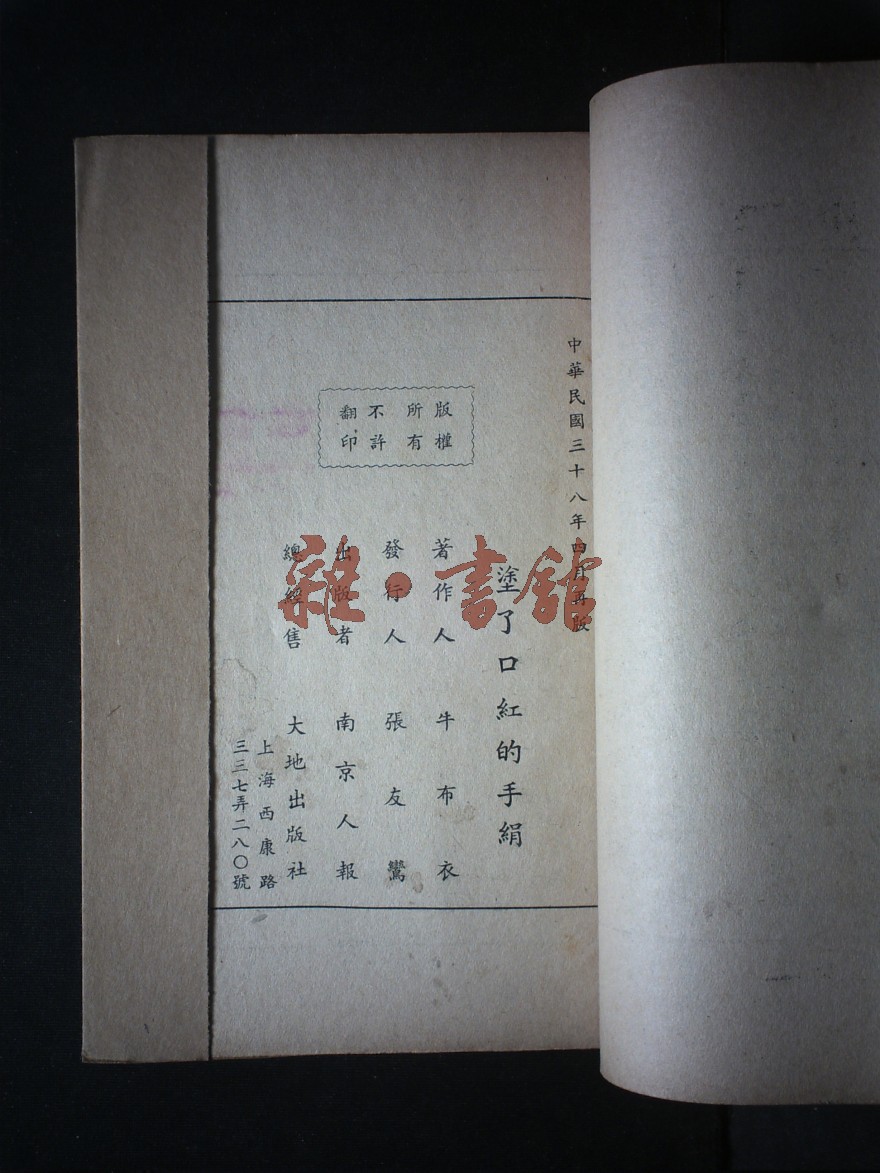 中華民國三十八年四月再版
塗了口紅的手絹
版權所有
不許翻印
著作人 牛布衣
發行人 張友鸞
出版者 南京人報
總經售 大地出版社
上海西康路
三三七弄二八〇號
雜·書館